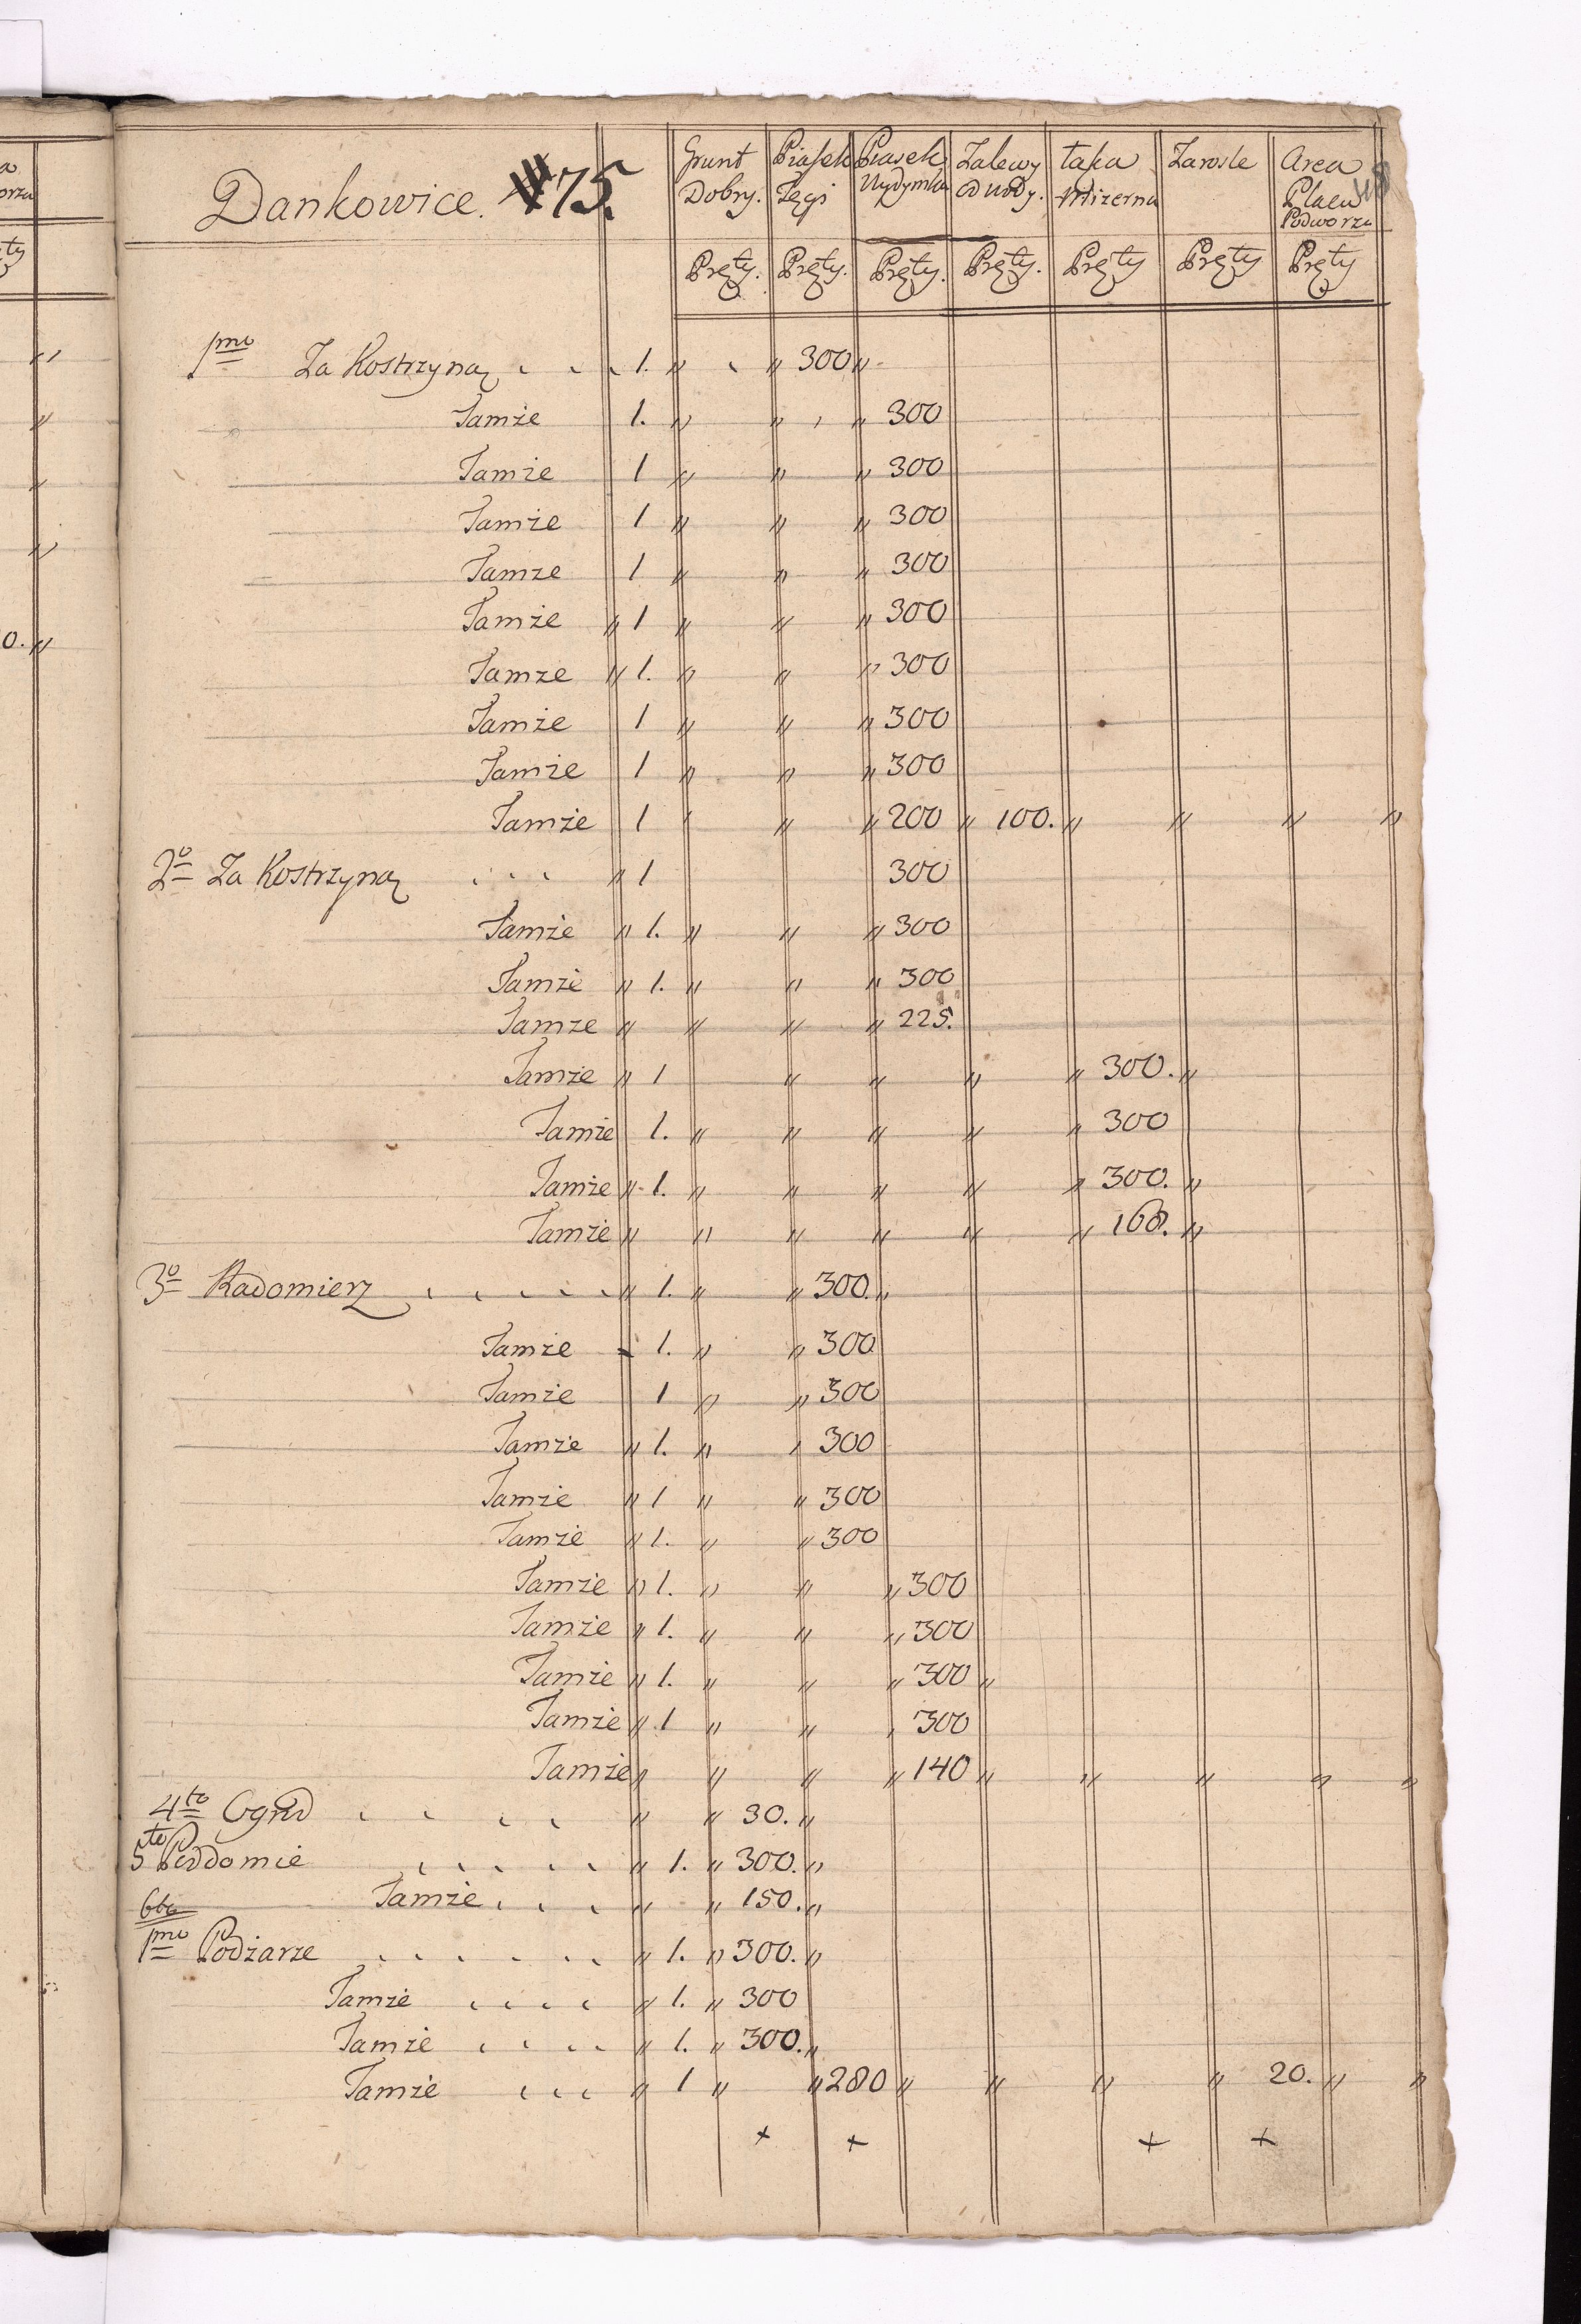 Dankowice. 75.
Grunt Dobry. Piasek Tęgi Piasek Wydymka Zalewy od wody. Łąka Mizerna Zarosle Area Placu Podworza
Pręty. Pręty. Pręty. Pręty. Pręty Pręty Pręty
1mo Za Kostrzyną 1. " " 300 "
Tamże 1. " " " 300
Tamże 1 " " " 300
Tamże 1 " " " 300
Tamze 1 " " " 300
Tamże " 1 " " " 300
Tamze " 1. " " " 300
Tamże 1 " " " 300
Tamże 1 " " " 300
Tamże 1 " " 200 " 100. " " " "
2o Za Kostrzyną " 1 300
Tamże " 1. " " " 300
Tamże " 1. " " " 300
Tamze " " " " 225.
Tamże " 1 " " " " 300. "
Tamże 1. " " " " " 300
Tamże " 1. " " " " " 300. "
Tamże " " " " " " 168. "
3o Radomierz " 1. " " 300. "
Tamże 1. " " 300.
Tamże 1 " " 300
Tamże " 1. " 300
Tamże " 1 " " 300
Tamże " 1. " " 300
Tamże " 1. " " " 300
Tamże " 1. " " " 300
Tamże " 1. " " " 300 "
Tamże " 1 " " 300
Tamże " " " " 140 " " " " "
4to Ogrod " " 30. "
5to Poddomie " 1. " 300. "
Tamże " " 150. "
6to
1mo Podżarze " 1. " 300. "
Tamże " 1. " 300
Tamże " 1. " 300. "
Tamże " 1 " " 280 " " " " 20. " "
+ + + +